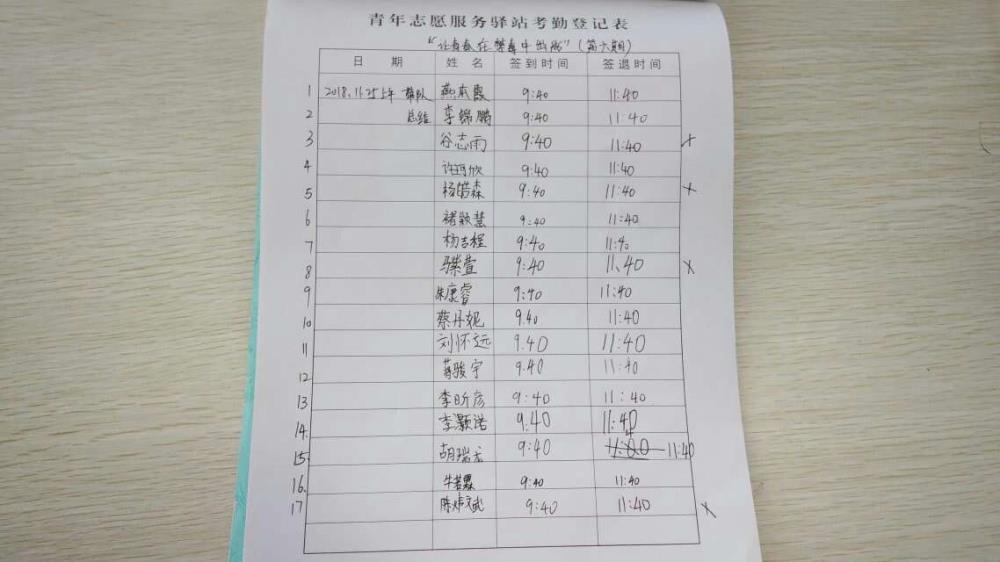 青年志愿服务驿站考勤登记表
"让青春在禁毒中出彩"(第六期)
日 期 姓 名 签到时间 签退时间
1 2018.11.25上午 带队 燕本霞 9:40 11:40
2 总结 李锦鹏 9:40 11:40
3 谷志雨 9:40 11:40 ×
4 9:40 11:40
5 杨皓森 9:40 11:40 ×
6 褚颖慧 9:40 11:40
7 杨吉程 9:40 11:40
8 9:40 11.40 ×
9 朱康睿 9:40 11:40
10 蔡丹妮 9.40 11:40
11 刘怀远 9.40 11:40
12 蒋骏宇 9.40 11:40
13 李昕彦 9:40 11:40
14. 李灏诺 9.40 11:40
15. 胡瑞 9:40 11:40
16. 牛若霖 9:40 11:40
17 9:40 11:40 ×